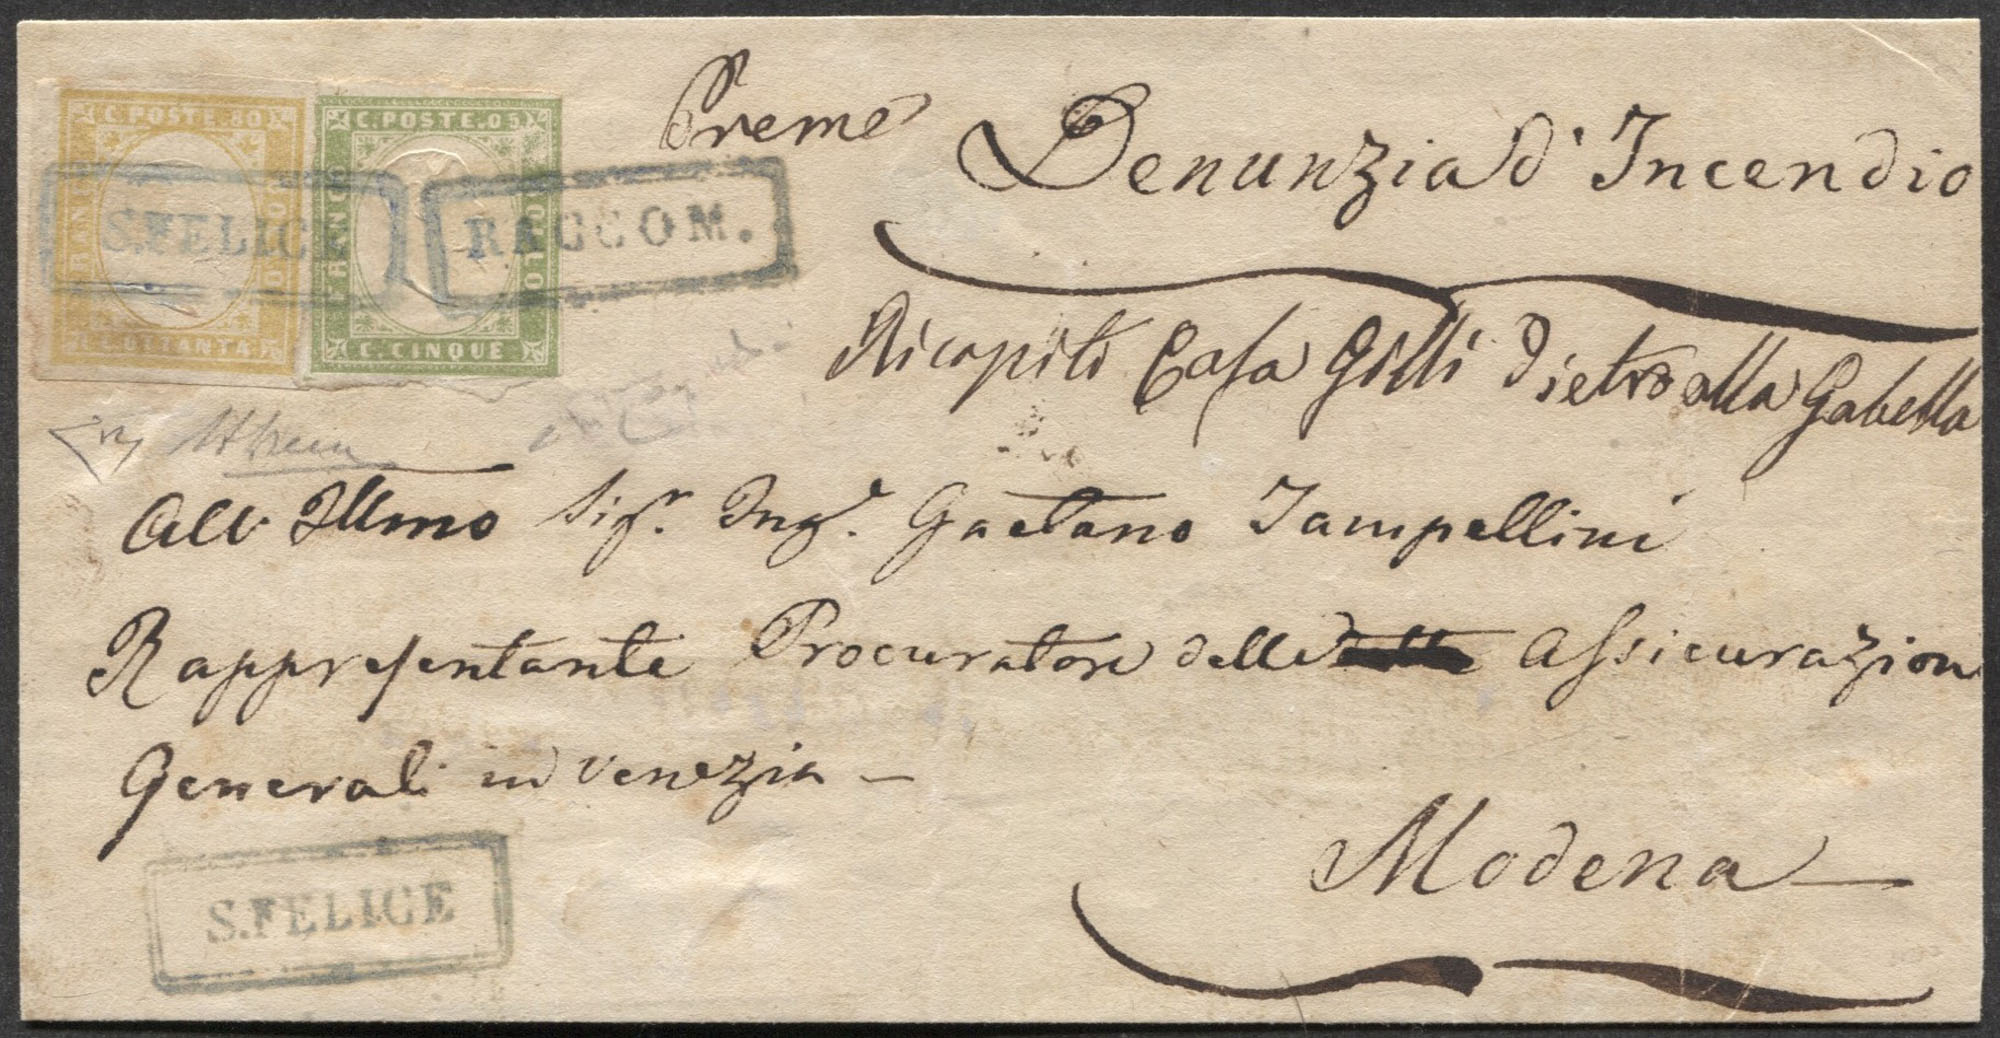 C. POSTE. 80
FRANCO BOLLO
C. OTTANTA
C. POSTE. 05
FRANCO BOLLO
C. CINQUE
S. FELICE
RACCOM.
Preme
Denunzia d'Incendio
Ricapito Casa Gilli Pietro alla Gabella
All Illmo Sigr. Inge. Gaetano Tampellini
Rappresentante Procuratore delle Assicurazion
Generali in Venezia —
Modena
S. FELICE